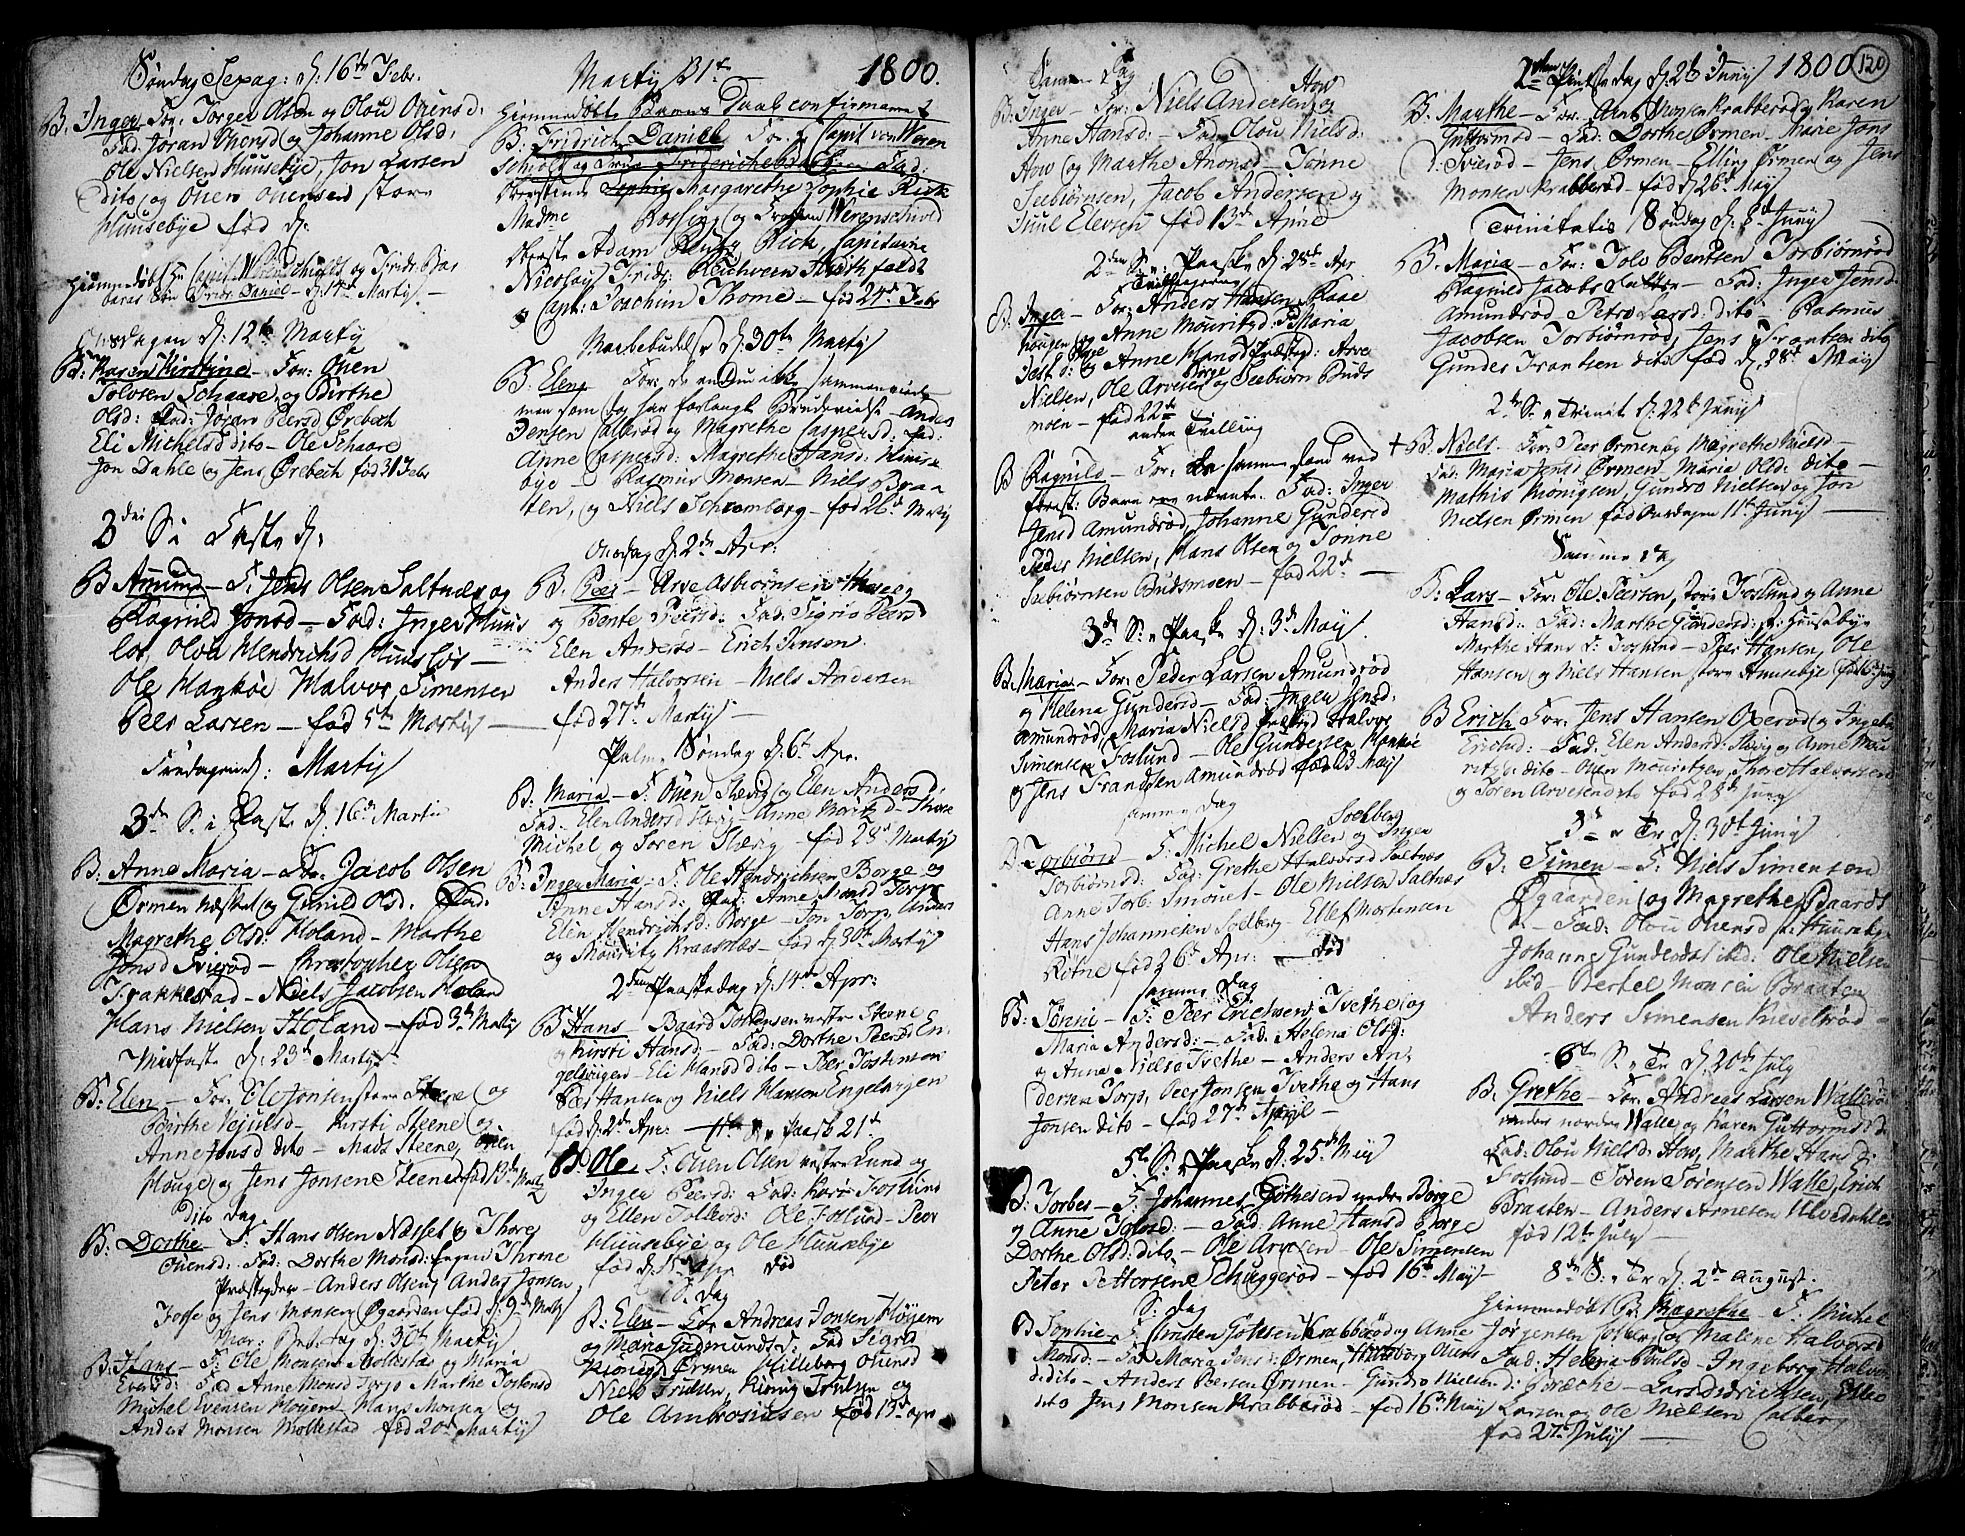 Søndag Sexag: d: 16de Febr.
B. Inger For: Torger Olsen og Olou Ouensd:
Fad: Jøran Thorsd og Johanne Olsd:
Ole Nielsen Huusebye, Jon Larsen
dito og Ouen Ouensen store
Huusebye fød d:
Hiemmedøbt Capit. Werenschiolds og Frid: Bar
bares Søn Fridr: Daniel – d: 14de Martij –
Onsdagen d: 12te Martij
B: Karen Kirstine – For: Ouen
Tolvsen Schaare og Birthe
Olsd: Fad: Jøran Peersd Ørebech
Eli Michelsd dito – Ole Schaare
Jon Dahle og Jens Ørebech fød 3 Febr
2den S: i Faste d:
B Amund – F: Jens Olsen Saltnes og
Ragnild Jonsd – Fad: Inger Huus
lør, Olou Hendrichsd Huusløs –
Ole Hankøe Halvor Simensen
Peer Larsen – fød 5te Martij –
Fredagen d: Martij
3de S: i Faste d: 16de Martii
B: Anne Maria – For: Jacob Olsen
Ørmen næsket og Gunild Olsd: Fad:
Magrethe Olsd: Holand – Marthe
Jonsd Svierød – Christopher Olsen
Frakkestad – Niels Jacobsen Holand
Hans Nielsen Holand – fød 3de Martij
Midfaste d: 23de Martij
B: Elen – For: Ole Jonsen store Steene og
Birthe Vejulsd – Kirsti Steene og
Anne Jonsd dito – Mads Steene, Ouen
Houge og Jens Jonsen Steene fød 13de Martij
Dito dag
B: Dorthe F: Hans Olsen Næsset og Thore
Ouensd: Fad: Dorthe Monsd:
Præstegden – Anders Olsen, Anders Jonsen
Tofte og Jens Monsen Øgaarden fød d: 9de Martij
d: 30te Martij
B: Hans – F: Ole Monsen Mollestad og Maria
Eversd: Fad Anne Monsd Torp Marthe Jostensd
Michel Svensen Høyem – Hans Monsen og
Anders Monsen Mollestad fød 20de Martij

Martij 31te 1800.
Hiemmedøbte Barns Daab confirmeret
B: Fridrich Daniel For: Capit von Weren
schiold og Frue Fad:
Oberstinde Margarethe Sophie Rick
Madme Rosling og Frøken Werenschiold
Oberste Adam Rick, Capitaine
Nicolay Frids: Reichwein
og Capt: Joachim Thome – fød 24de Febr
Mariebebudelse d: 30te Martij
B: Elen For: de endnu ikke sammenviede
men som dog har forlangt Brudevielse – Anders
Jensen Callerød og Magrethe Caspersd: Fad:
Anne Caspersd: Magrethe Hansd: Huuse
bye – Rasmus Monsen – Niels Braa
ten, og Niels Schromborg – fød 26de Martij
Onsdag d: 2de Apr:
B. Peer – Arve Asbiørnsen
og Bente Peersd: Fad: Sigrid Peersd
Elen Andersd – Erich Jensen
Anders Halvorsen – Niels Andersen
fød 27de Martij –
Palme Søndag d: 6te Apr.
B: Maria – F: Ouen Slevig og Elen Andersd:
Fad: Elen Andersd Slevig – Anne Moritzd – Thore
Michel og Søren Slevig – fød 28de Martij
B: Inger Maria – F: Ole Hendrichsen Borge og
Anne Hansd: Fad: Anne Monsd Torp
Elen Hendrichsd: Borge – Jon Torp, Anders
og Mouritz Kraasnæs – fød d: 30te Martij
2den Paaskedag d: 14de Apr:
B Hans – Baard Jostensen vestre Steene
og Kirsti Hansd – Fad: Dorthe Peersd En
gelsvigen – Eli Hansd dito – Peer Jostensen
Peer Hansen og Niels Hansen Engelsvigen
fød d: 2de Apr: – 1te S: e Paask 21de
B: Ole – F: Ouen Olsen vestre Lund og
Inger Peersd: Fad: Karen Foslund
og Ellen Tollevsd: Ole Foslund – Peer
Huusebye og Ole Huusebye
fød d: 15de Apr død
S: Dag
B: Elen – For: Andreas Jonsen Høyem
og Maria Gudmundsd: Fad Sigrid
Kionigsd Ørmen Hilleborg Ouensd
Niels Truelsen, Kionig Truelsen og
Ole Ambrosiusen fød 13de Apr

Samme Dag How
B: Inger – For: Niels Andersen og
Anne Hansd: – Fad: Olou Nielsd:
How og Marthe Aronsd – Tønne
Seebiørnsen, Jacob Andersen og
Juul Elevsen fød 13de April
2den S: e Paaske d: 25de Apr
Tvillingerne
B. Inger – For: Anders Hansen
og Anne Mouritzd: Fad: Maria
og Anne Hansd Præsteg: Arve
Nielsen, Ole Arvesen og Seebiørn Buds
moen – fød 22de
anden Tvilling
B Ragnild – For: de samme som ved
første Barn ere nævnte. Fad: Inger
Jensd Amundrød, Johanne Gundersd
Peder Nielsen, Hans Olsen og Tønne
Seebiørnsen Budsmoen – fød 22de –
3de S: e Paaske d: 3de Maij
B: Maria – For: Peder Larsen Amundrød
og Helena Gundersd – Fad: Inger Jensd:
Amundrød, Maria Nielsd Halvor
Simensen Foslund – Ole Gundersen Hankøe
og Jens Frandsen Amundrød fød 23 Maij
samme Dag
B: Torbiørn – F: Michel Nielsen Soelberg og Inger
Torbiørnsd: Fad: Grethe Halvorsd Saltnes
Anne Torb: Smouet – Ole Nielsen Saltnes
Hans Johannesen Solberg – Ellef Mortensen
Ritne fød 26de Apr: – død
samme Dag
B: Jønni – F: Peer Erichsen, Tvethe og
Maria Andersd: – Fad: Helena Olsd:
og Anna Nielsd Tvethe – Anders An
dersen Torp, Peer Jonsen Tvethe og Hans
Jonsen dito – fød 27de April –
5te S: e Paaske d: 25de Maij
B: Torber – F: Johannes Gøthesen nedre Borge
og Anne Tolvsd: – Fad: Anne Hansd Borge
Dorthe Olsd: dito – Ole Arvesen – Ole Simensen
Peter Pettersen Schuggerød – fød 16de Maij –
S: Dag
B Sophie – F: Christen Gøthesen Krabberød og Anne
Monsd: – Fad Maria Jensd: Ørmen, Hilleborg Ouens
d: dito – Anders Peersen Ørmen – Gundro Nielsen
dito Jens Monsen Krabberød – fød 16de Maij

2den Pintsedag d: 2de Junij 1800 120
B. Marthe – For: Monsen Krabberød og Karen
Guttormsd – Fad: Dorthe Ørmen – Marie Jons
d: Svierød – Jens Ørmen – Elling Ørmen og Jens
Monsen Krabberød – fød d: 26de Maij
Trinitatis Søndag d: 8de Junij
B. Maria – For: Tolv Bentsen Torbiørnrød
Ragnild Jacobsdatter – Fad: Inger Jensd.
Amundrød Petro Larsd: dito – Rasmus
Jacobsen Torbiørnrød, Jens Frantsen dito
Gunder Frantsen dito fød d. 28de Maij
2den S: e Trinit d: 22de Junij
+ B. Niels – For: Peer Ørmen og Magrethe Nielsd –
Fad: Maria Jensd Ørmen, Maria Olsd: dito –
Mathis Kionigsen, Gundro Nielsen og Jon
Nielsen Ørmen fød Onsdagen 11te Junij –
Samme Dag
B: Lars – For: Ole Peersen, store Foslund og Anne
Hansd: Fad: Marthe Gundersd: st. Huusebye
Marthe Hans d: Foslund – Peer Hansen, Ole
Hansen og Niels Hansen store Huusebye fød 16de Junij
B Erich For: Jens Hansen Oxerød og Ingeb
Erichsd: – Fad: Elen Andersd: Slevig og Anne Mou
ritzd: dito – Ouen Mouritzen, Thore Halvorsen
og Søren Arvesen dito fød 28de Junij
3de S: e Tr d: 30te Junij
B: Simen – F: Niels Simensen
Øgaarden og Magrethe Baards
d: – Fad: Olou Ouensd st. Huusebye
Johanne Gundersd ibid: Ole Nielsen
ibid – Bertel Monsen Braaten
Anders Simensen Kieselrød
6te S: e Tr d: 20de July
B: Grethe – For: Andreas Larsen Walle
nordre Walle og Karen Guttormsd
Fad: Olou Nielsd: How, Marthe Hansd:
Foslund – Søren Sørensen Walle, Erich
Braaten – Anders Arnesen Ulvedahlen
fød 12te July –
8de S: e Tr d: 2de August.
Hiemmedøbt B: Magrethe – F: Michel
Jørgensen Colberg og Malene Halvorsd
Fad: Helena Poulsd – Ingeborg Halvors
d: Bræche – Lars Didrichsen, Ellev
Larsen og Ole Nielsen Colberg
fød 27de Julij –